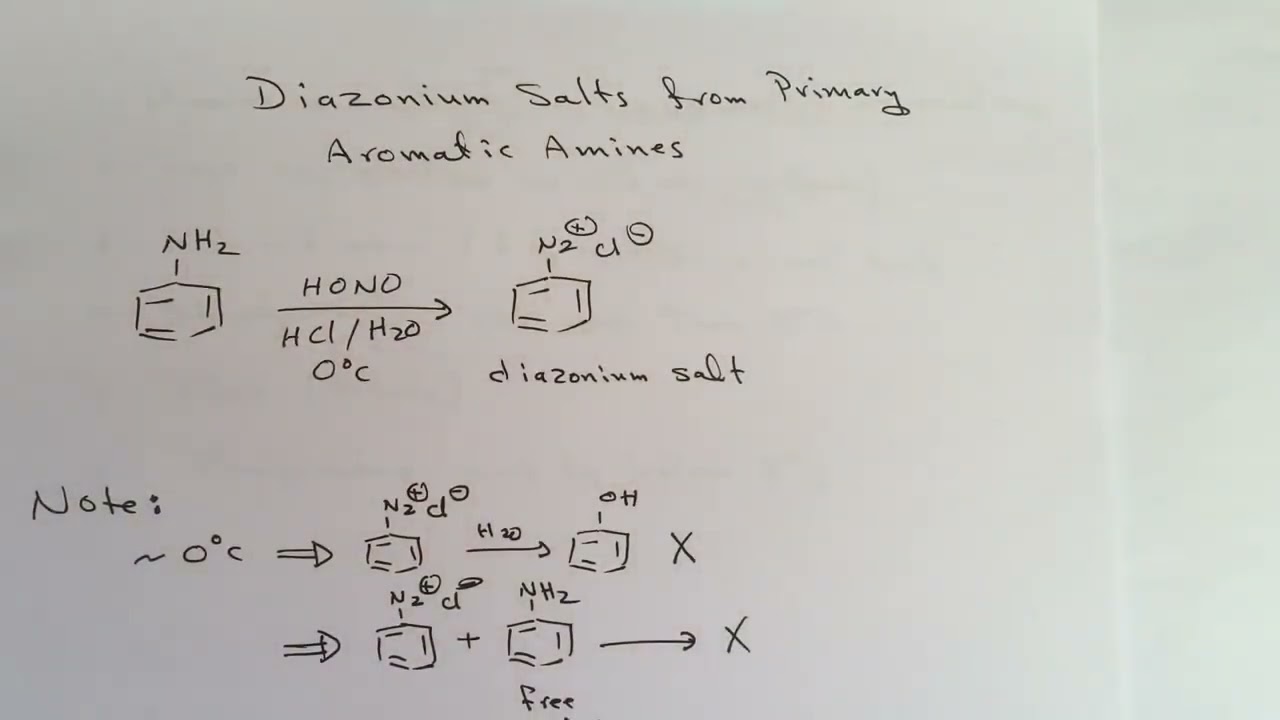 Diazonium Salts from Primary
Aromatic Amines
NH2
N2⊕ Cl⊖
HONO
HCl / H2O
0°C
diazonium salt
Note:
N2⊕ Cl⊖
OH
H2O
~ 0°C ⇒ → X
N2⊕ Cl⊖ NH2
⇒ + → X
free